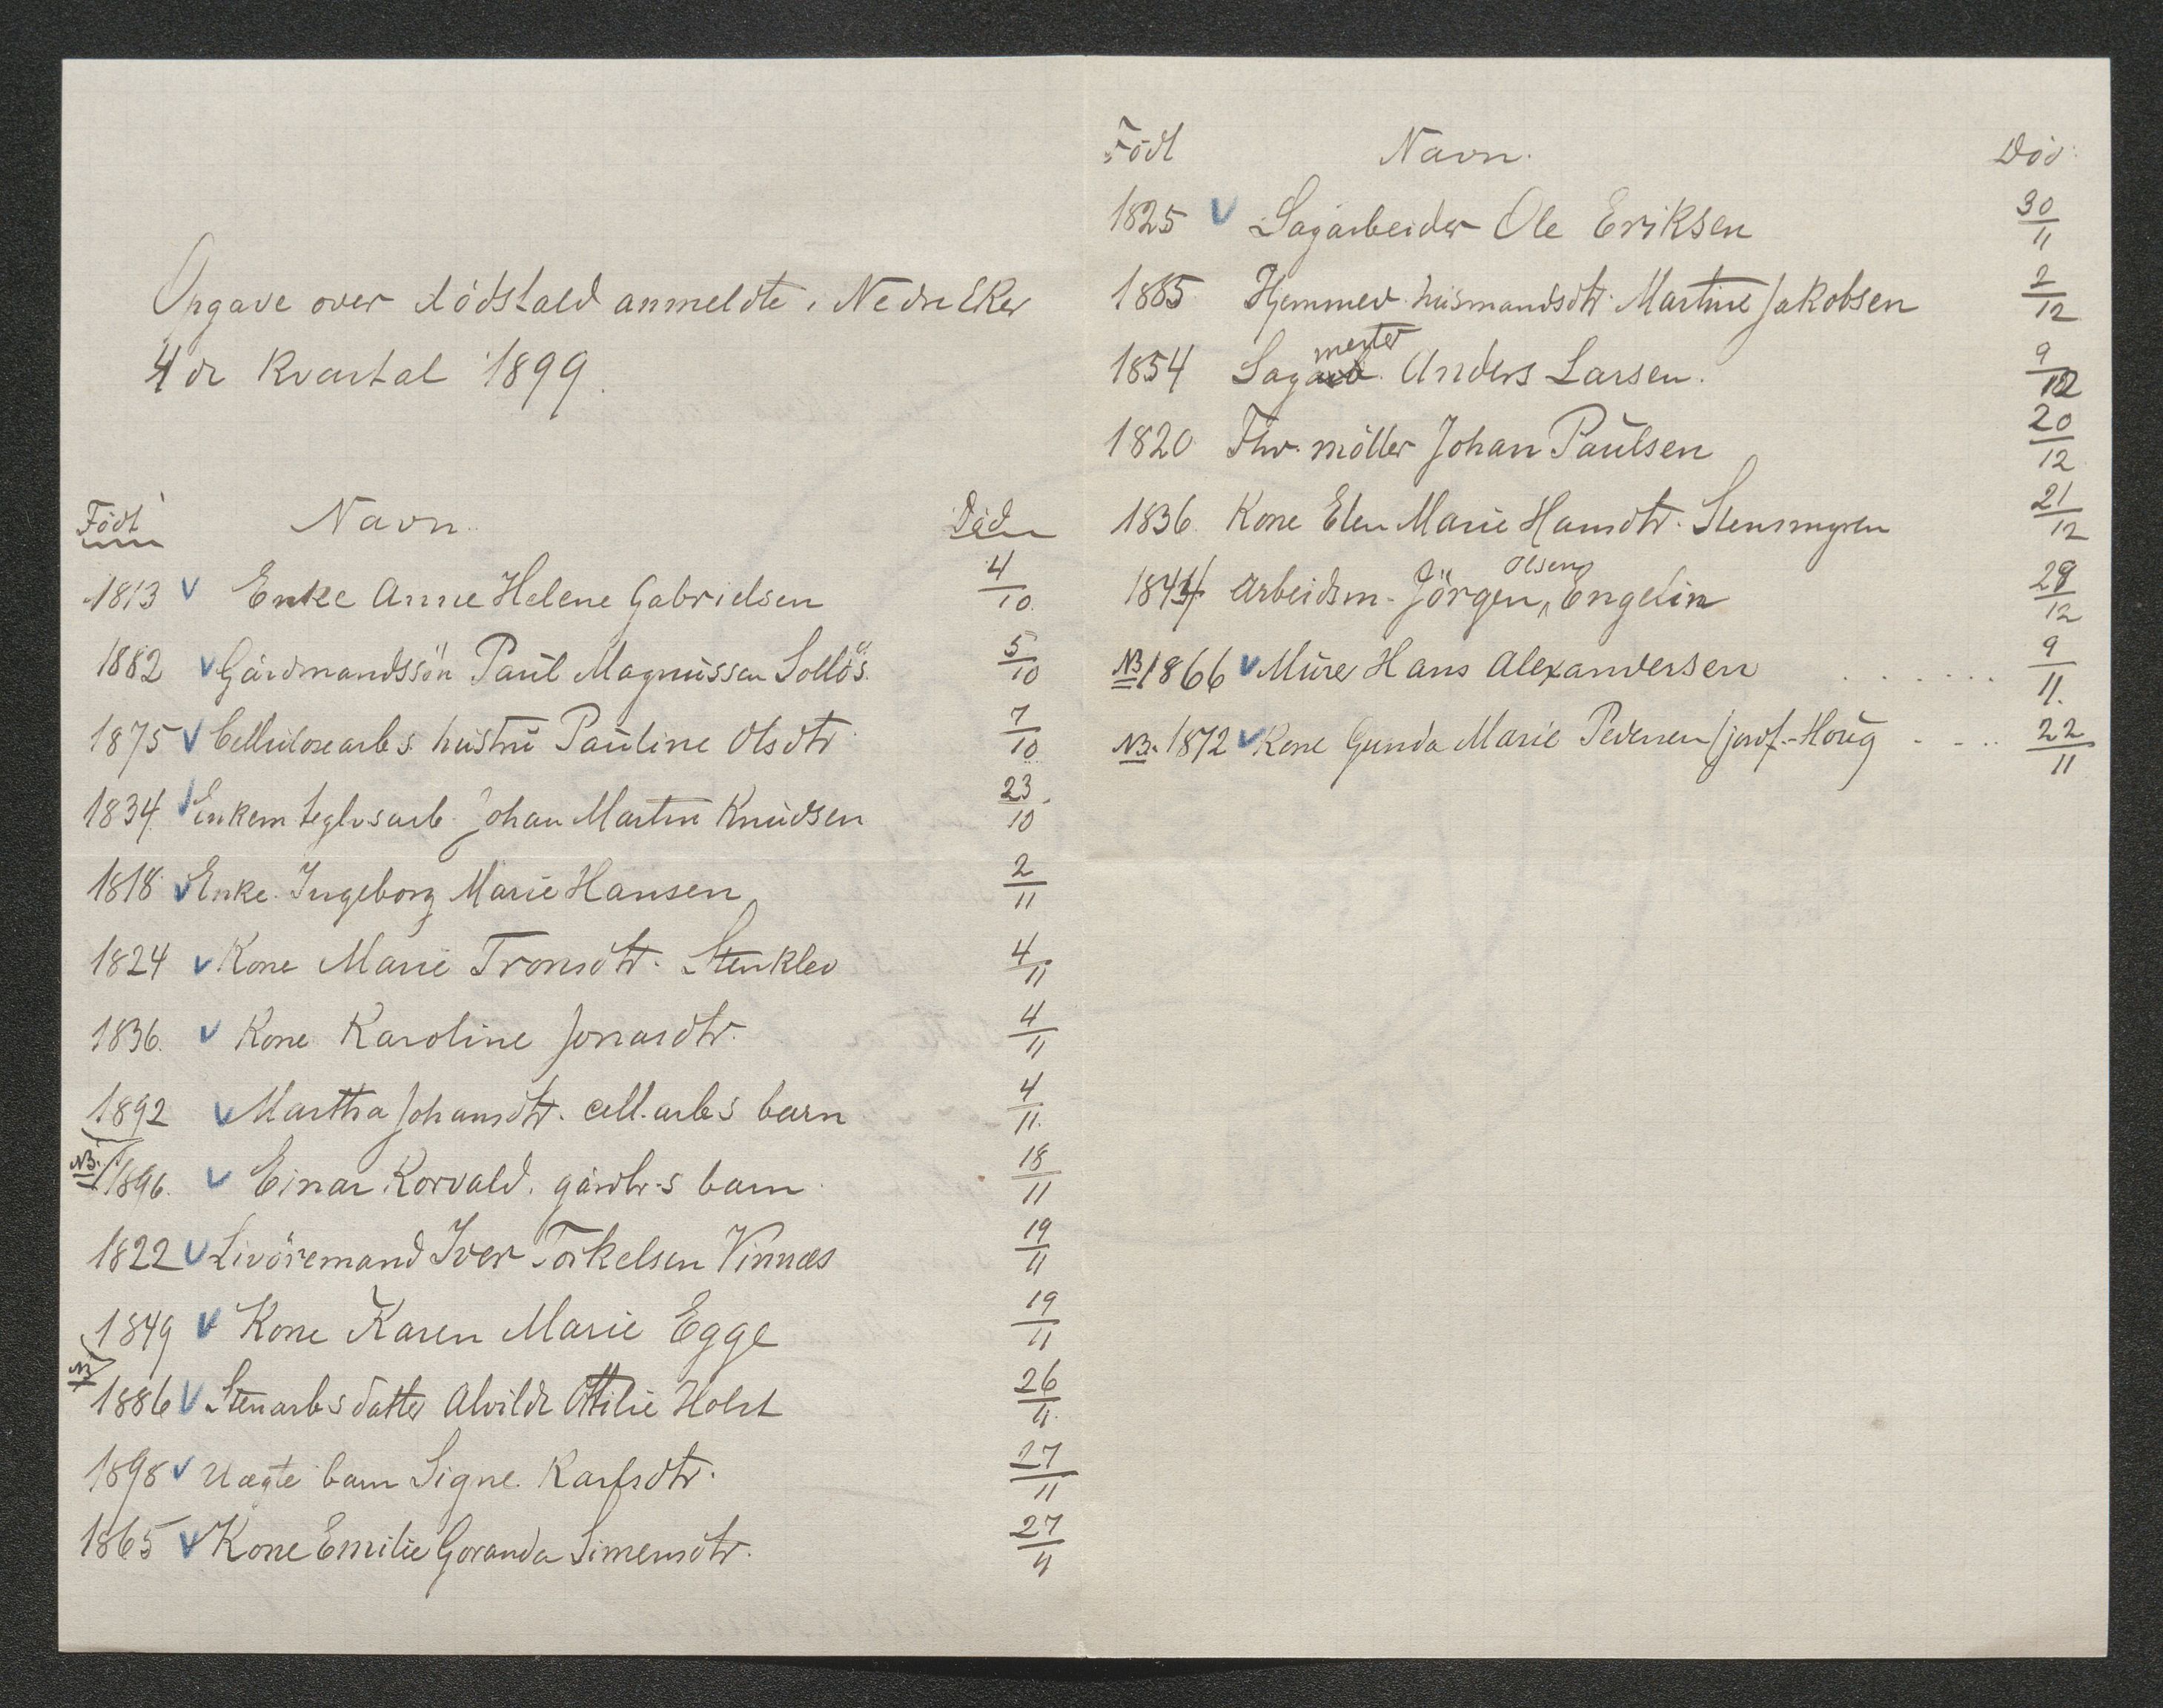 Opgave over dödsfald anmeldte i Nedre Eker
4de Kvartal 1899.
Födt Navn. Död
1813 V Enke Anne Helene Gabrielsen 4/10.
1882 V Gårdmandssön Paul Magnussen Solløs. 5/10
1875 V Cellulosearb.s hustru Pauline Olsdtr 7/10
1834. V Enkem teglvsarb. Johan Martin Knudsen 23/10
1818 V Enke Ingeborg Marie Hansen 2/11
1824 V Kone Marie Tronsdtr. Stenklev 4/11
1836. V Kone Karoline Jonasdtr. 4/11
1892 V Martha Johansdtr. cell.arb.s barn 4/11.
NB. 1896. V Einar Korvald, gårdbr.s barn 18/11
1822 V Livöremand Iver Torkelsen Vinnæs 19/11
1849 V Kone Karen Marie Egge 19/11
NB 1886 V Stenarb.s datter Alvilde Ottilie Holst 26/11.
1898 V Uægte barn Signe Karlsdtr. 27/11
1865 V Kone Emilie Goranda Simensdtr. 27/11
Födt Navn. Död.
1825 V Sagarbeider Ole Eriksen 30/11
1885 Hjemmev. husmandsdtr. Martine Jakobsen 2/12
mester
1854 Sag Anders Larsen. 9/12
1820 Fhv. möller Johan Paulsen 20/12
1836. Kone Elen Marie Hansdtr. Stensmyren 21/12
Olsen
1844 Arbeidsm. Jörgen Engelin 29/12
NB 1866 V Murer Hans Alexandersen ....... 9/11.
NB. 1872 V Kone Gunda Marie Pedersen /jordf. Houg .... 22/11